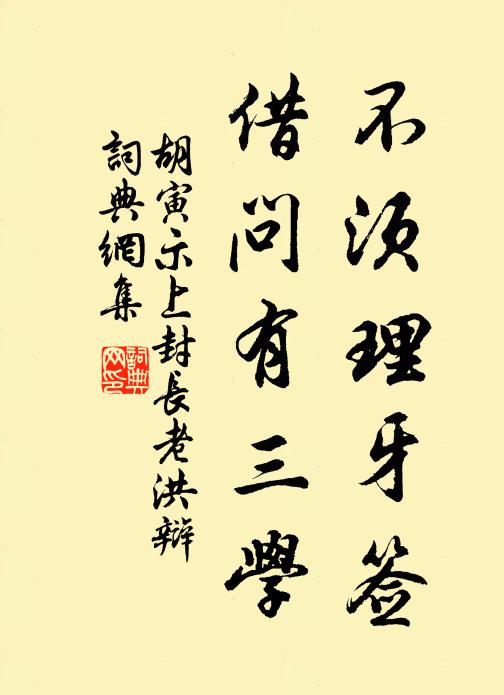 不须理牙签
借問有三學
胡寅示上封長老洪辯
詞典網集
詞典网印